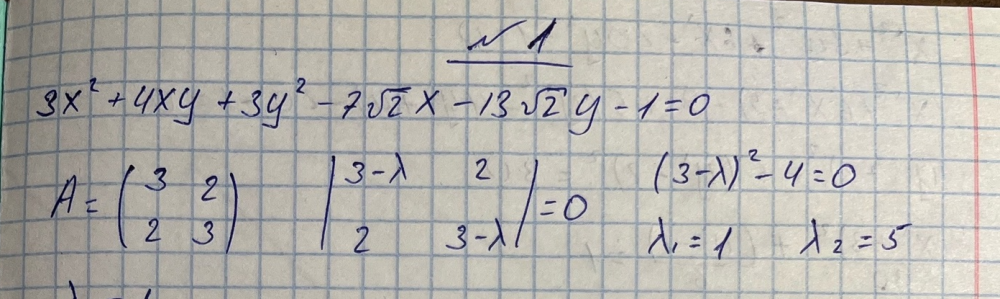 №1
3x² + 4xy + 3y² - 7√2 x - 13√2 y - 1 = 0
A = (3 2; 2 3) |3-λ 2; 2 3-λ| = 0 (3-λ)² - 4 = 0
λ₁ = 1 λ₂ = 5